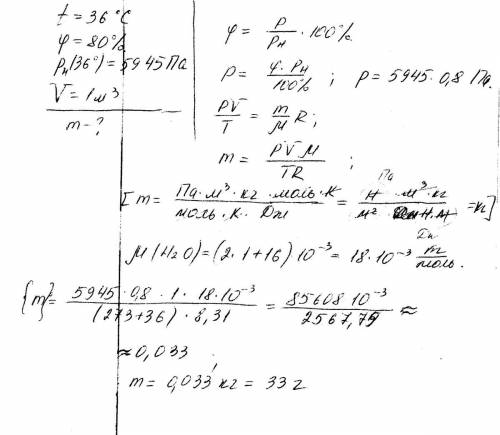 t = 36 °C
φ = 80%
Pн (36°) = 5945 Па
V = 1 м³
m - ?
φ = P/Pн · 100%
P = φ · Pн / 100% ; P = 5945 · 0,8 Па.
PV/T = m/M R;
m = PVM/TR ;
[m = Па · м³ · кг · моль · К / моль · К · Дж = Н · м³ · кг / м² · Н·м = кг]
Па
Дж
M (H₂O) = (2 · 1 + 16) 10⁻³ = 18 · 10⁻³ кг/моль.
{m} = 5945 · 0,8 · 1 · 18 · 10⁻³ / (273+36) · 8,31 = 85608 10⁻³ / 2567,79 ≈
≈ 0,033
m = 0,033 кг = 33 г